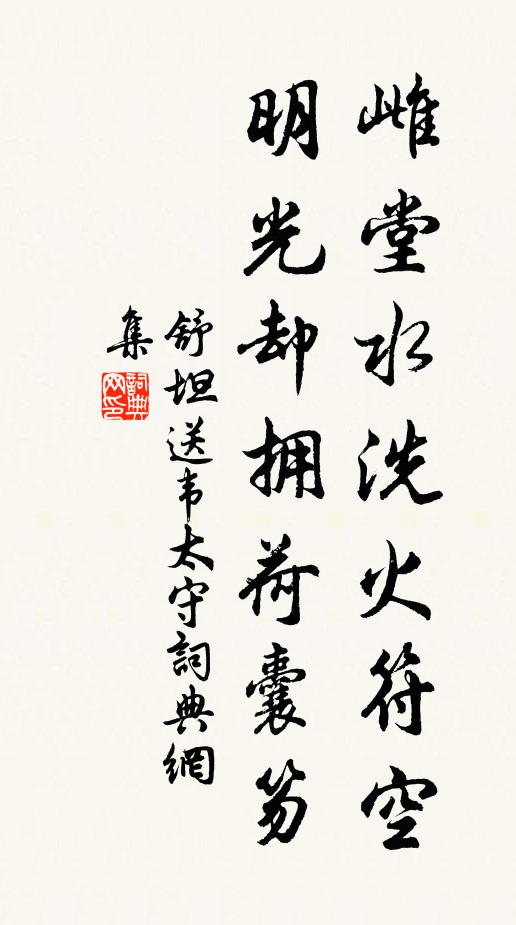 雌堂水洗火符空
明光却拥荷囊笏
舒坦送韦太守詞典網
集
詞典网印